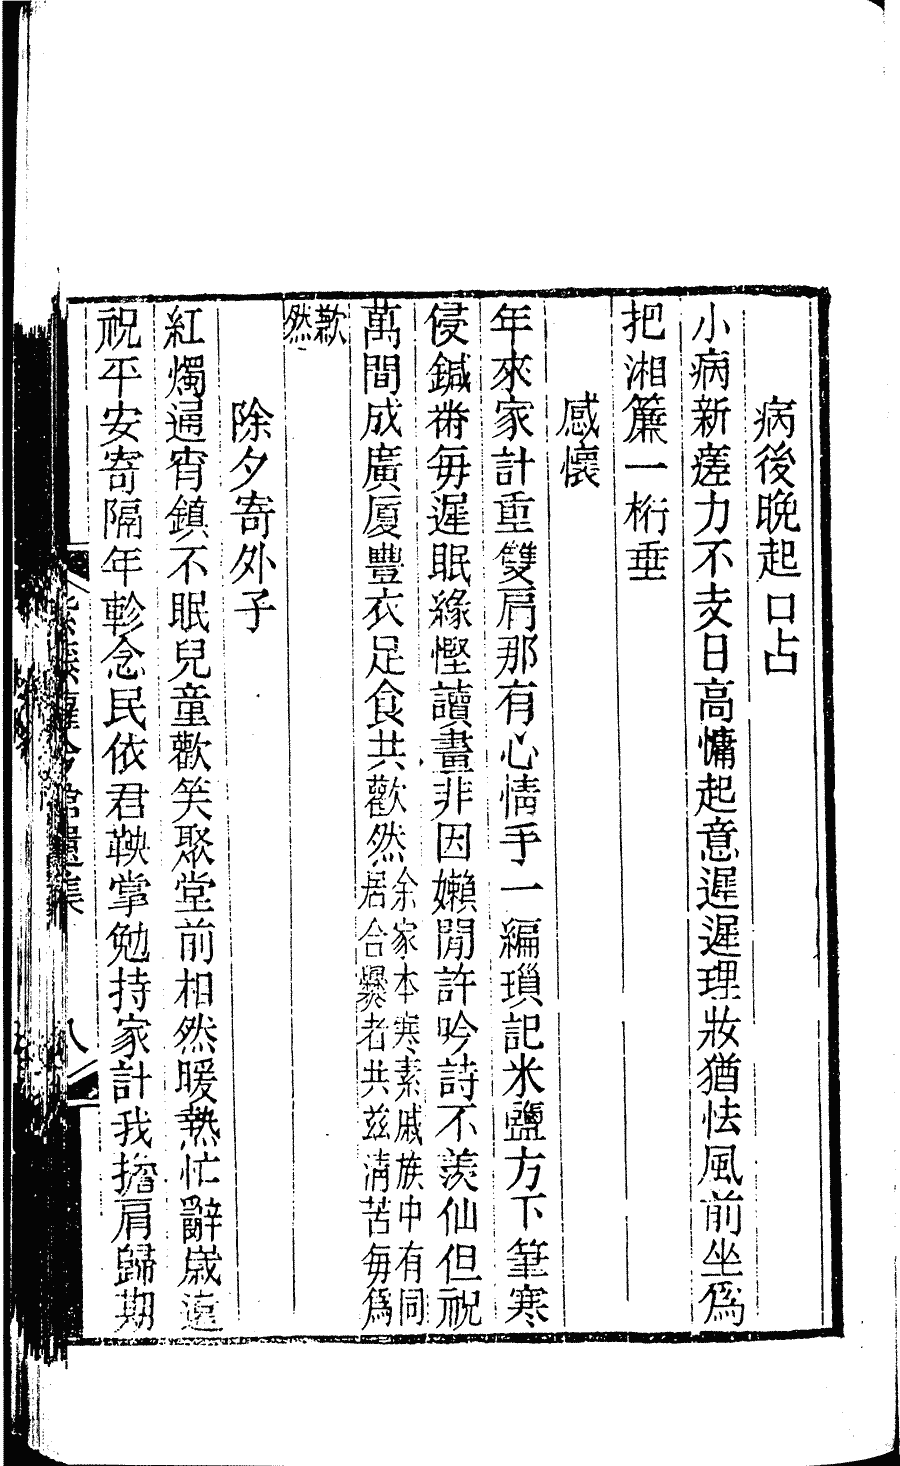 病後晚起口占
小病新瘥力不支日高慵起意遲遲理妝猶怯風前坐爲
把湘簾一桁垂
感懷
年來家計重雙肩那有心情手一編瑣記米鹽方下筆寒
侵鍼黹每遲眠緣慳讀畫非因嬾閒許吟詩不羨仙但祝
萬間成廣厦豐衣足食共歡然
余家本寒素戚族中有同
居合爨者共兹淸苦每爲
歎
然
除夕寄外子
紅燭通宵鎮不眠兒童歡笑聚堂前相然暖熱忙辭歲遠
祝平安寄隔年軫念民依君鞅掌勉持家計我擔肩歸期
館遺集
八